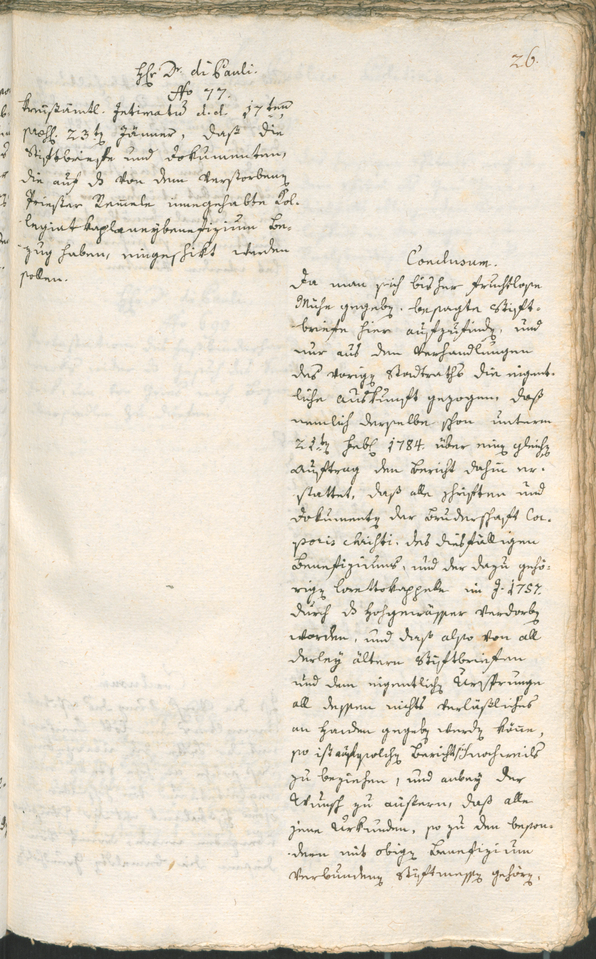 26.
Hr. Dr. di Pauli.
No 77.
Kreisämtl. Intimatum d. d. 17ten
praes. 23ten Jänner, daß die
Stiftbriefe und Dokumenten,
die auf d von dem verstorbenen
Priester Remele innegehabte Kol-
legiatkaplaneybenefizium Be-
zug haben, eingeschikt werden
sollen.
Conclusum.
Da man sich bisher fruchtlose
Mühe gegeben, besagte Stift-
briefe hier aufzufinden, und
nur aus den Verhandlungen
des vorigen Stadtraths die eigent-
liche Auskunft gezogen, daß
nemlich derselbe schon unterm
21ten Feb. 1784 über einen gleichen
Auftrag den Bericht dahin er-
stattet, daß alle Schriften und
Dokumenten der Bruderschaft Cor-
poris Christi, des diesfälligen
Benefiziums, und der dazu gehö-
rigen Lorettokappelle im J. 1757.
durch d Hochgewässer verdorben
worden, und daß also von all
derley ältern Stiftbriefen
und dem eigentlichen Ursprunge
all dessen nichts verläßliches
an Handen gegeben werden könne,
so ist auf solchen Bericht nochmals
zu beziehen, und anbey der
Wunsch zu äussern, daß alle
jene Urkunden, so zu den beson-
dern mit obigen Benefizium
verbundenen Stiftmessen gehören,